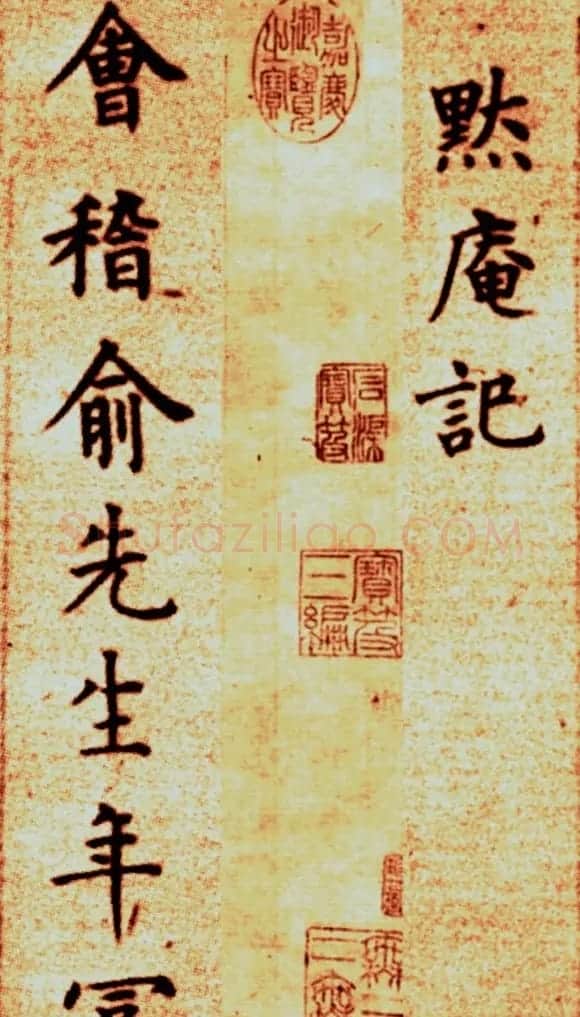 黙庵記
嘉慶御覽之寶
石渠寶笈
寶笈三編
會稽俞先生年
Shufaziliao.COM